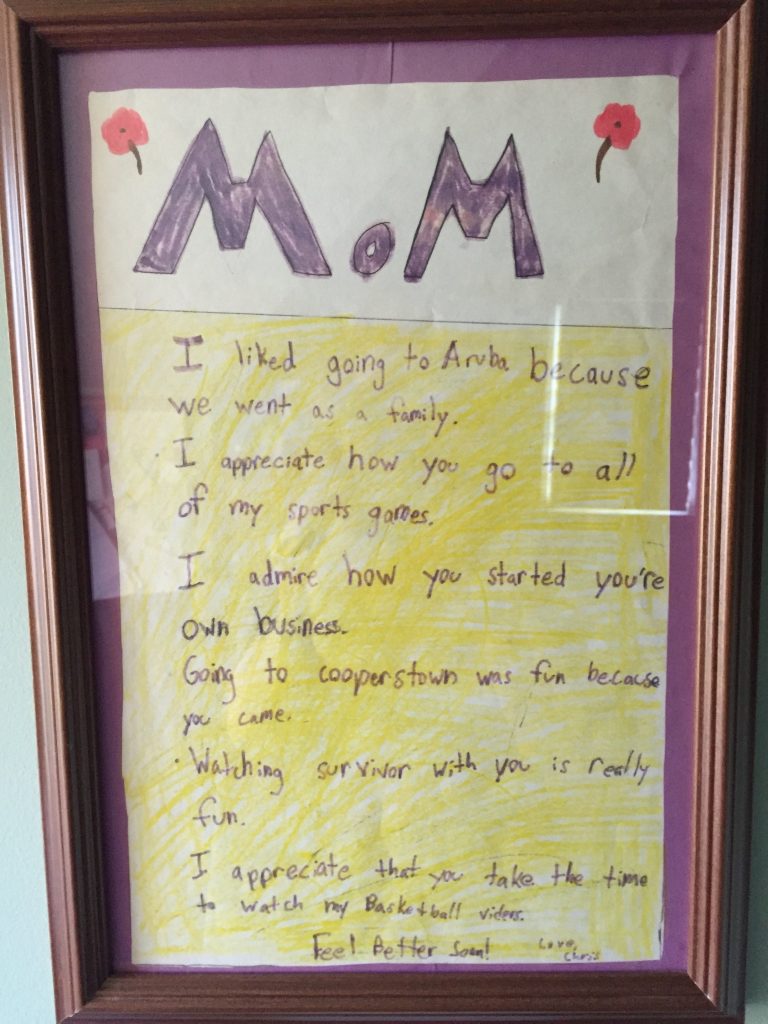 MoM
I liked going to Aruba because
we went as a family.
· I appreciate how you go to all
of my sports games.
I admire how you started you're
own business.
Going to cooperstown was fun because
you came.
· Watching survivor with you is really
fun.
I appreciate that you take the time
to watch my Basketball videos.
Feel Better Soon!
Love,
Chris